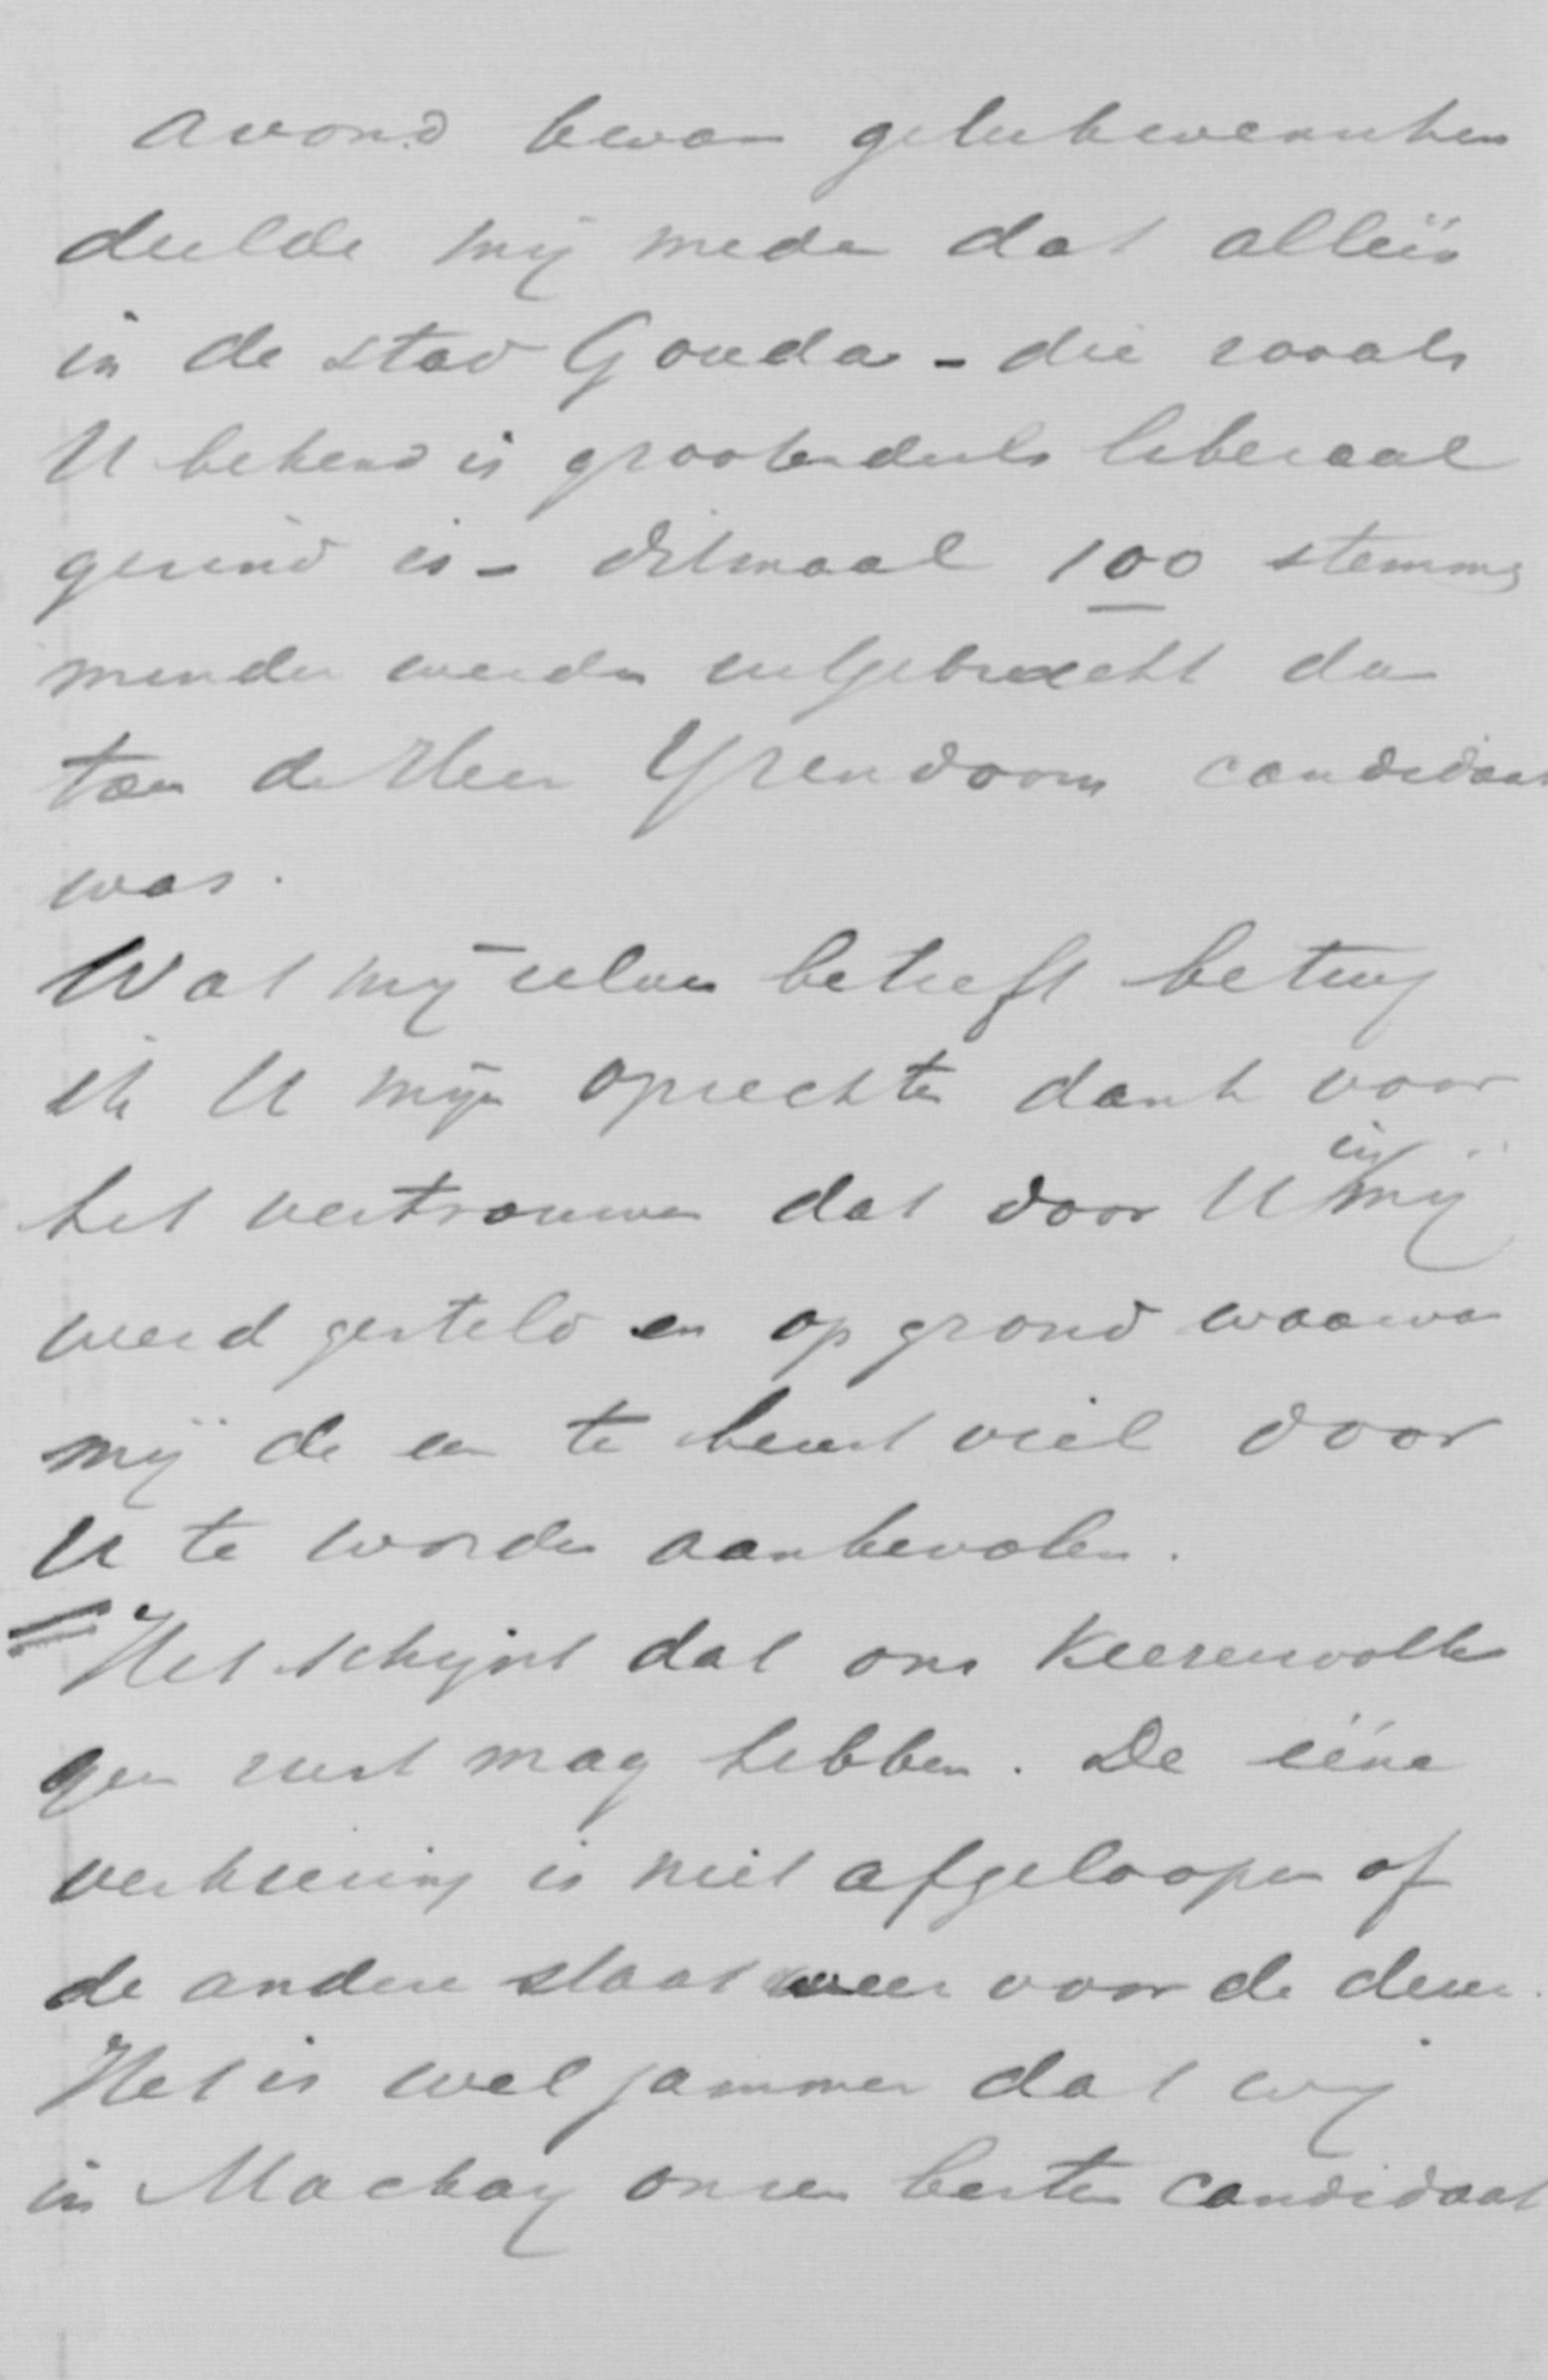 avond kwam gelukwenschen
deelde mij mede dat alleen
in de stad Gouda - die zooals
U bekend is grootendeels liberaal
gezind is - ditmaal 100 stemmen
minder werden uitgebracht dan
toen de Heer IJzendoorn candidaat
was.
Wat mij zelven betreft betuig
ik U mijn oprechten dank voor
het vertrouwen dat door U in mij
werd gesteld en op grond waarvan
mij de eer te beurt viel door
U te worden aanbevolen.
Het schijnt dat ons Keezenvolk
geen rust mag hebben. De ééne
verkiezing is niet afgeloopen of
de andere staat weer voor de deur.
Het is wel jammer dat wij
in Mackay onzen besten candidaat